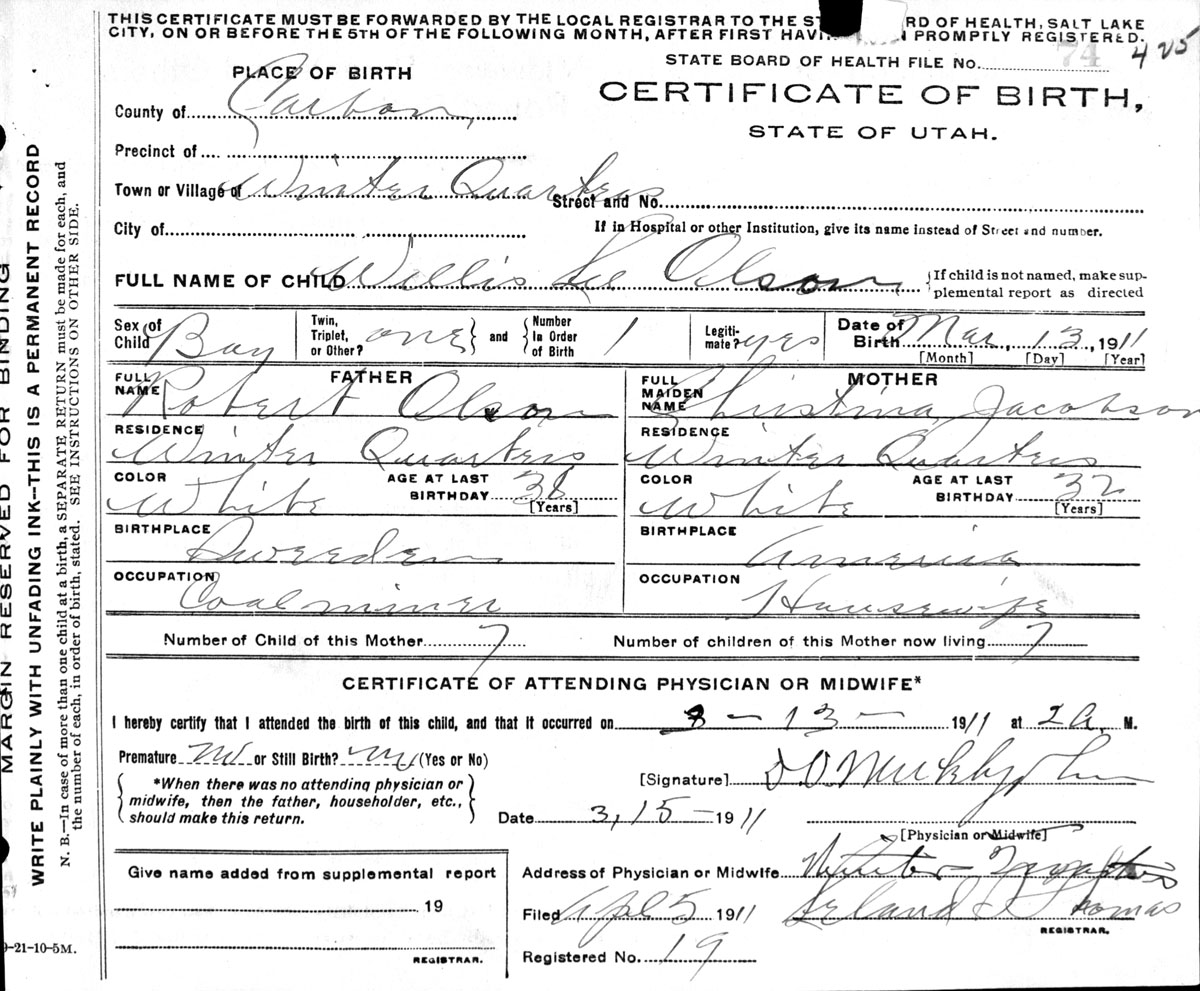 THIS CERTIFICATE MUST BE FORWARDED BY THE LOCAL REGISTRAR TO THE ST RD OF HEALTH, SALT LAKE
CITY, ON OR BEFORE THE 5TH OF THE FOLLOWING MONTH, AFTER FIRST HAVIN PROMPTLY REGISTERED.
STATE BOARD OF HEALTH FILE No. 74 425
PLACE OF BIRTH
CERTIFICATE OF BIRTH,
STATE OF UTAH.
County of Carbon
Precinct of
Town or Village of Winter Quarters Street and No.
City of If in Hospital or other Institution, give its name instead of Street and number.
FULL NAME OF CHILD Willis Lee Olson {If child is not named, make sup-
plemental report as directed
Sex of Child Boy Twin, Triplet, or Other? one and Number In Order of Birth 1 Legiti-mate? yes Date of Birth Mar 13, 1911
[Month] [Day] [Year]
FATHER MOTHER
FULL NAME Robert Olson FULL MAIDEN NAME Christina Jacobson
RESIDENCE Winter Quarters RESIDENCE Winter Quarters
COLOR White AGE AT LAST BIRTHDAY 38 [Years] COLOR White AGE AT LAST BIRTHDAY 32 [Years]
BIRTHPLACE Sweeden BIRTHPLACE America
OCCUPATION Coalminer OCCUPATION Housewife
Number of Child of this Mother 7 Number of children of this Mother now living 7
CERTIFICATE OF ATTENDING PHYSICIAN OR MIDWIFE*
I hereby certify that I attended the birth of this child, and that it occurred on 3-13- 1911 at 2 a. M.
Premature no or Still Birth? no (Yes or No)
[Signature]
*When there was no attending physician or
midwife, then the father, householder, etc.,
should make this return.
Date 3, 15- 1911
[Physician or Midwife]
Give name added from supplemental report
Address of Physician or Midwife Winter Quarters
19
Filed Apl 5 1911 Leland Thomas
REGISTRAR.
REGISTRAR.
Registered No. 19
9-21-10-5M.
MARGIN RESERVED FOR BINDING
WRITE PLAINLY WITH UNFADING INK—THIS IS A PERMANENT RECORD
N. B.—In case of more than one child at a birth, a SEPARATE RETURN must be made for each, and
the number of each, in order of birth, stated. SEE INSTRUCTIONS ON OTHER SIDE.